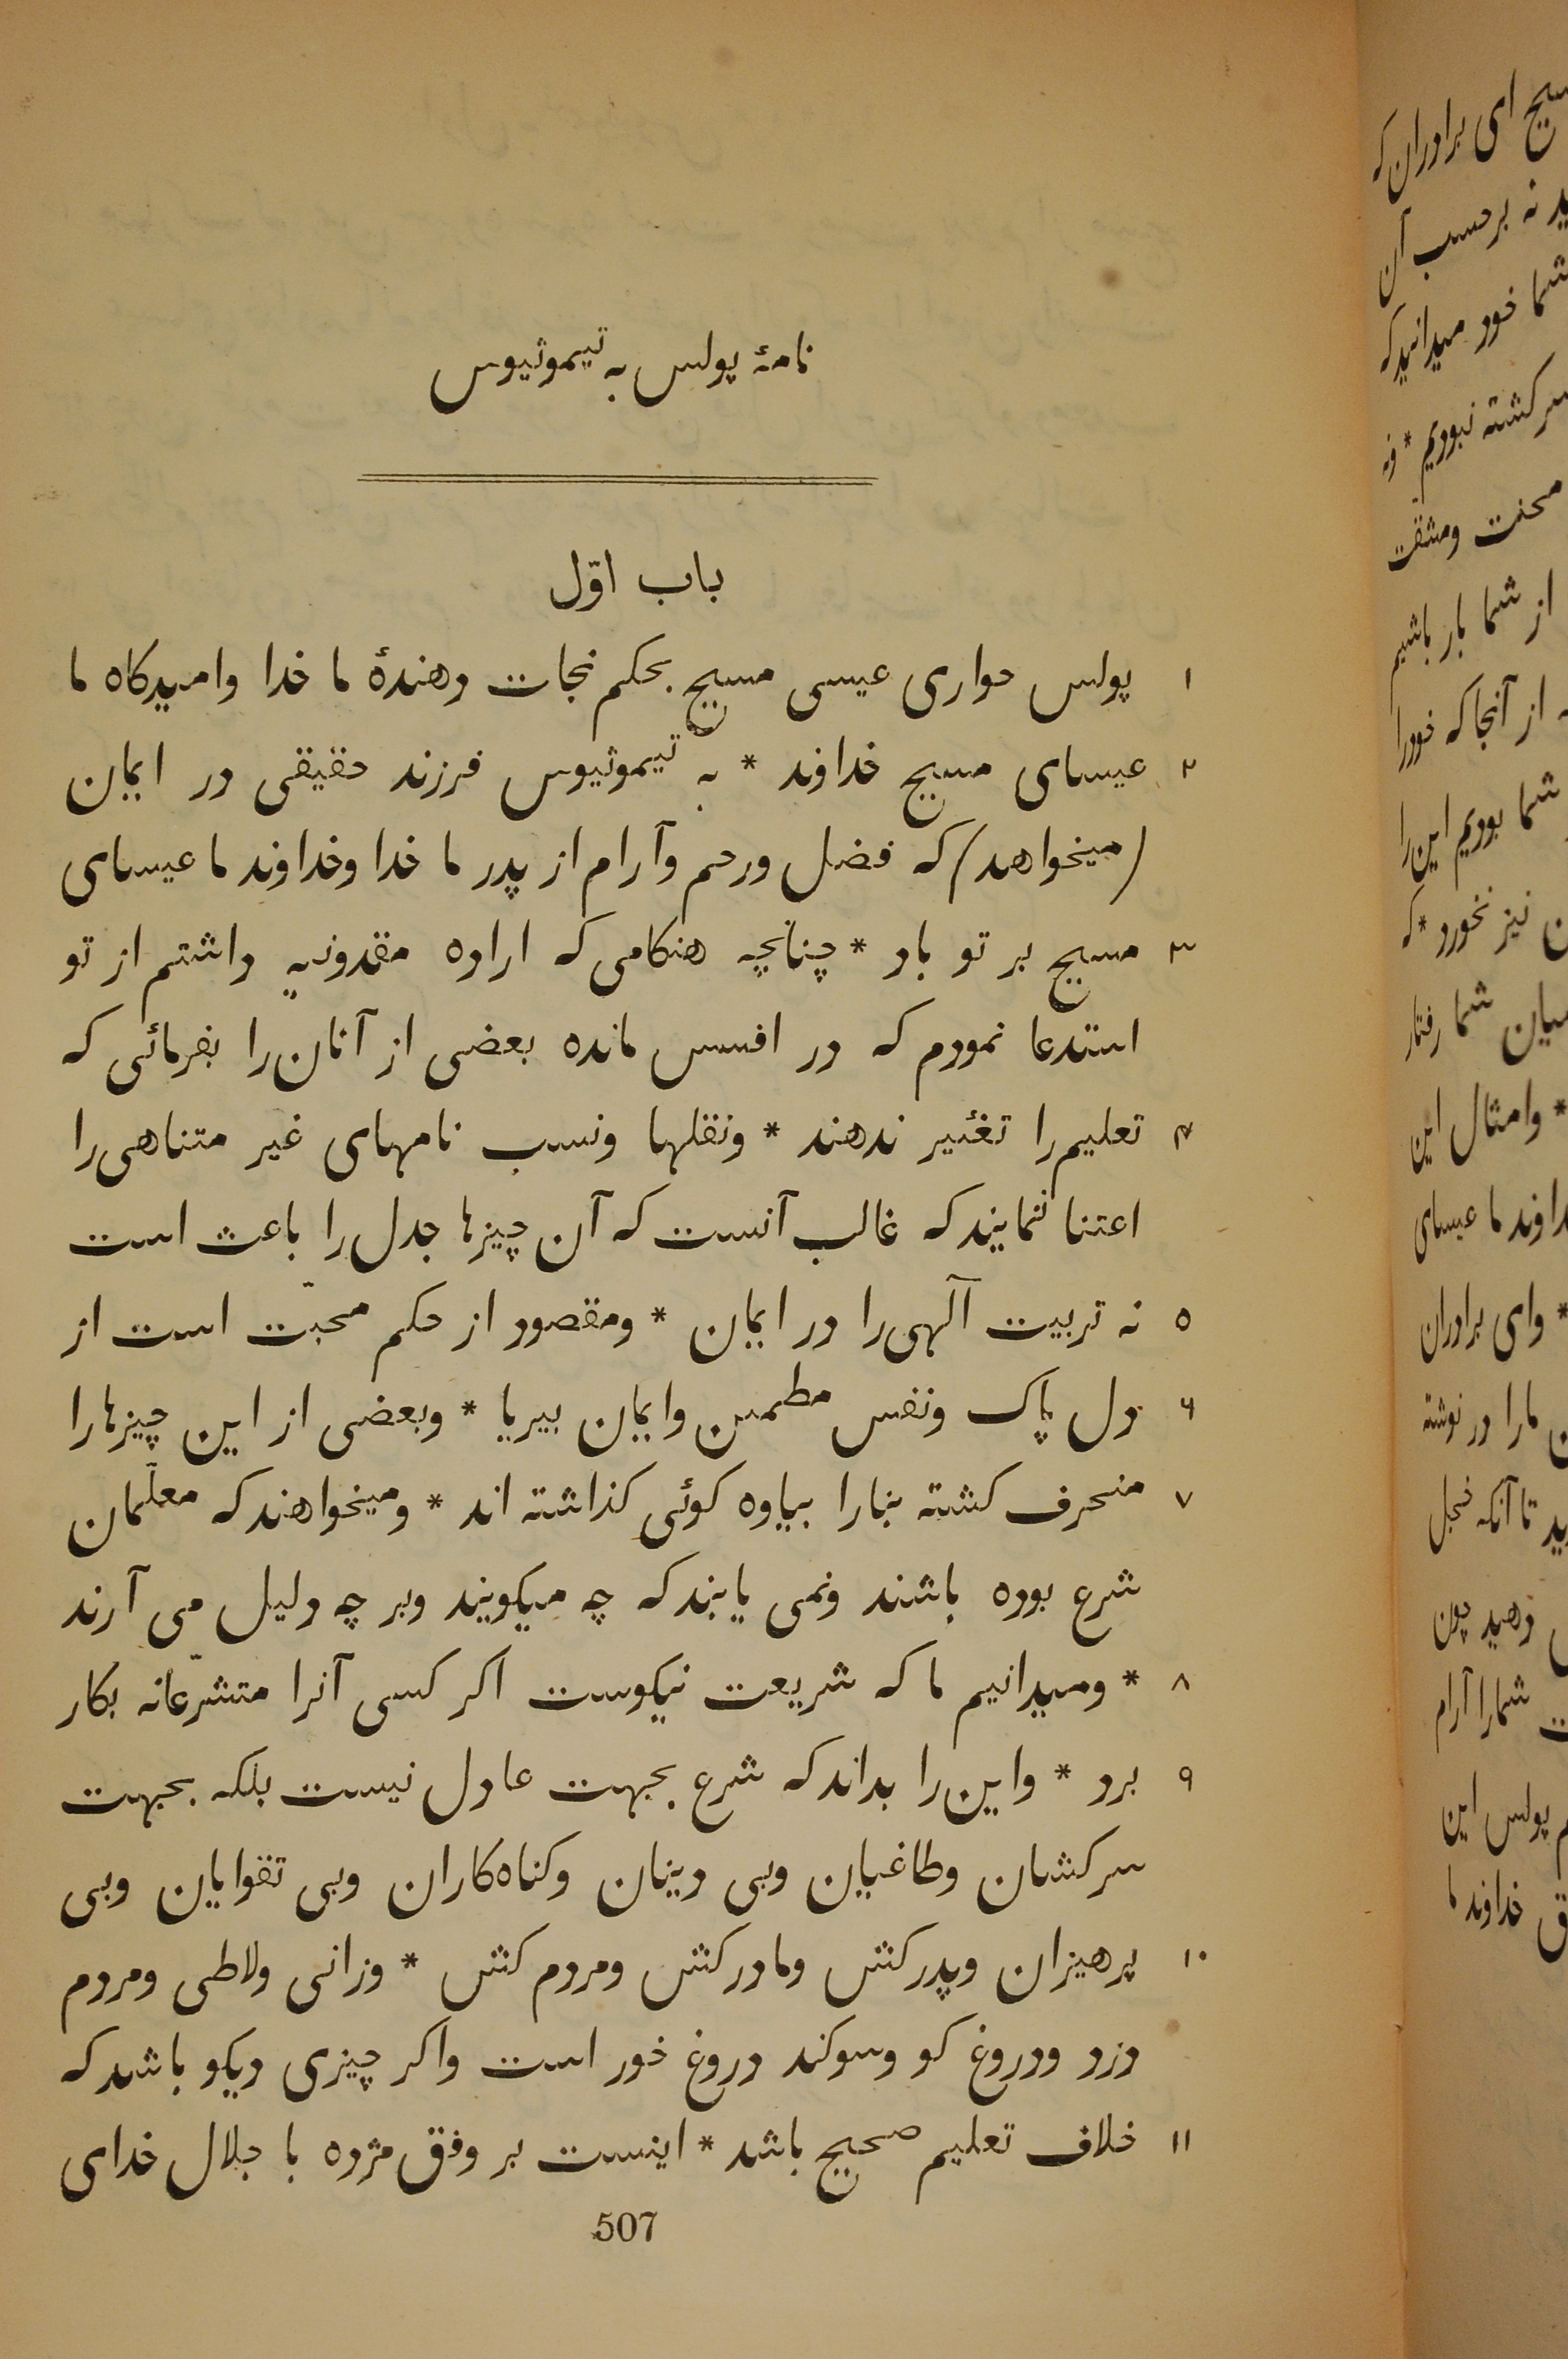 نامهٔ پولس به تیموثیوس
باب اوّل
۱ پولس حواری عیسی مسیح بحکم نجات دهندهٔ ما خدا وامیدکاه ما
۲ عیسای مسیح خداوند * به تیموثیوس فرزند حقیقی در ایمان
(میخواهد) که فضل ورحم وآرام از پدر ما خدا وخداوند ما عیسای
۳ مسیح بر تو باد * چنانچه هنکامی که اراده مقدونیه داشتم از تو
استدعا نمودم که در افسس مانده بعضی از آنان را بفرمائی که
۴ تعلیم را تغئیر ندهند * ونقلها ونسب نامهای غیر متناهی را
اعتنا ننمایند که غالب آنست که آن چیزها جدل را باعث است
۵ نه تربیت آلهی را در ایمان * ومقصود از حکم محبّت است از
۶ دل پاک ونفس مطمین وایمان بیریا * وبعضی از این چیزها را
۷ منحرف کشته بنا را بیاوه کوئی کذاشته اند * ومیخواهند که معلّمان
شرع بوده باشند ونمی یابند که چه میکویند وبر چه دلیل می آرند
۸ * ومیدانیم ما که شریعت نیکوست اکر کسی آنرا متشرّعانه بکار
۹ برد * واین را بداند که شرع بجهت عادل نیست بلکه بجهت
سرکشان وطاغیان وبی دینان وکناه کاران وبی تقوایان وبی
۱۰ پرهیزان وپدر کش ومادر کش ومردم کش * وزانی ولاطی ومردم
دزد ودروغ کو وسوکند دروغ خور است واکر چیزی دیکر باشد که
۱۱ خلاف تعلیم صحیح باشد * اینست بر وفق مژده با جلال خدای
507
سیح ای برادران که
ید نه برحسب آن
شما خود میدانید که
سرکشته نبودیم * ونه
محنت ومشقّت
از شما بار باشیم
از آنجا که خود را
شما بودیم این را
ن نیز نخورد * که
میان شما رفتار
* وامثال این
خداوند ما عیسای
* وای برادران
ن ما را در نوشته
ید تا آنکه خجل
دهید چون
ت شما را آرام
م پولس این
ق خداوند ما